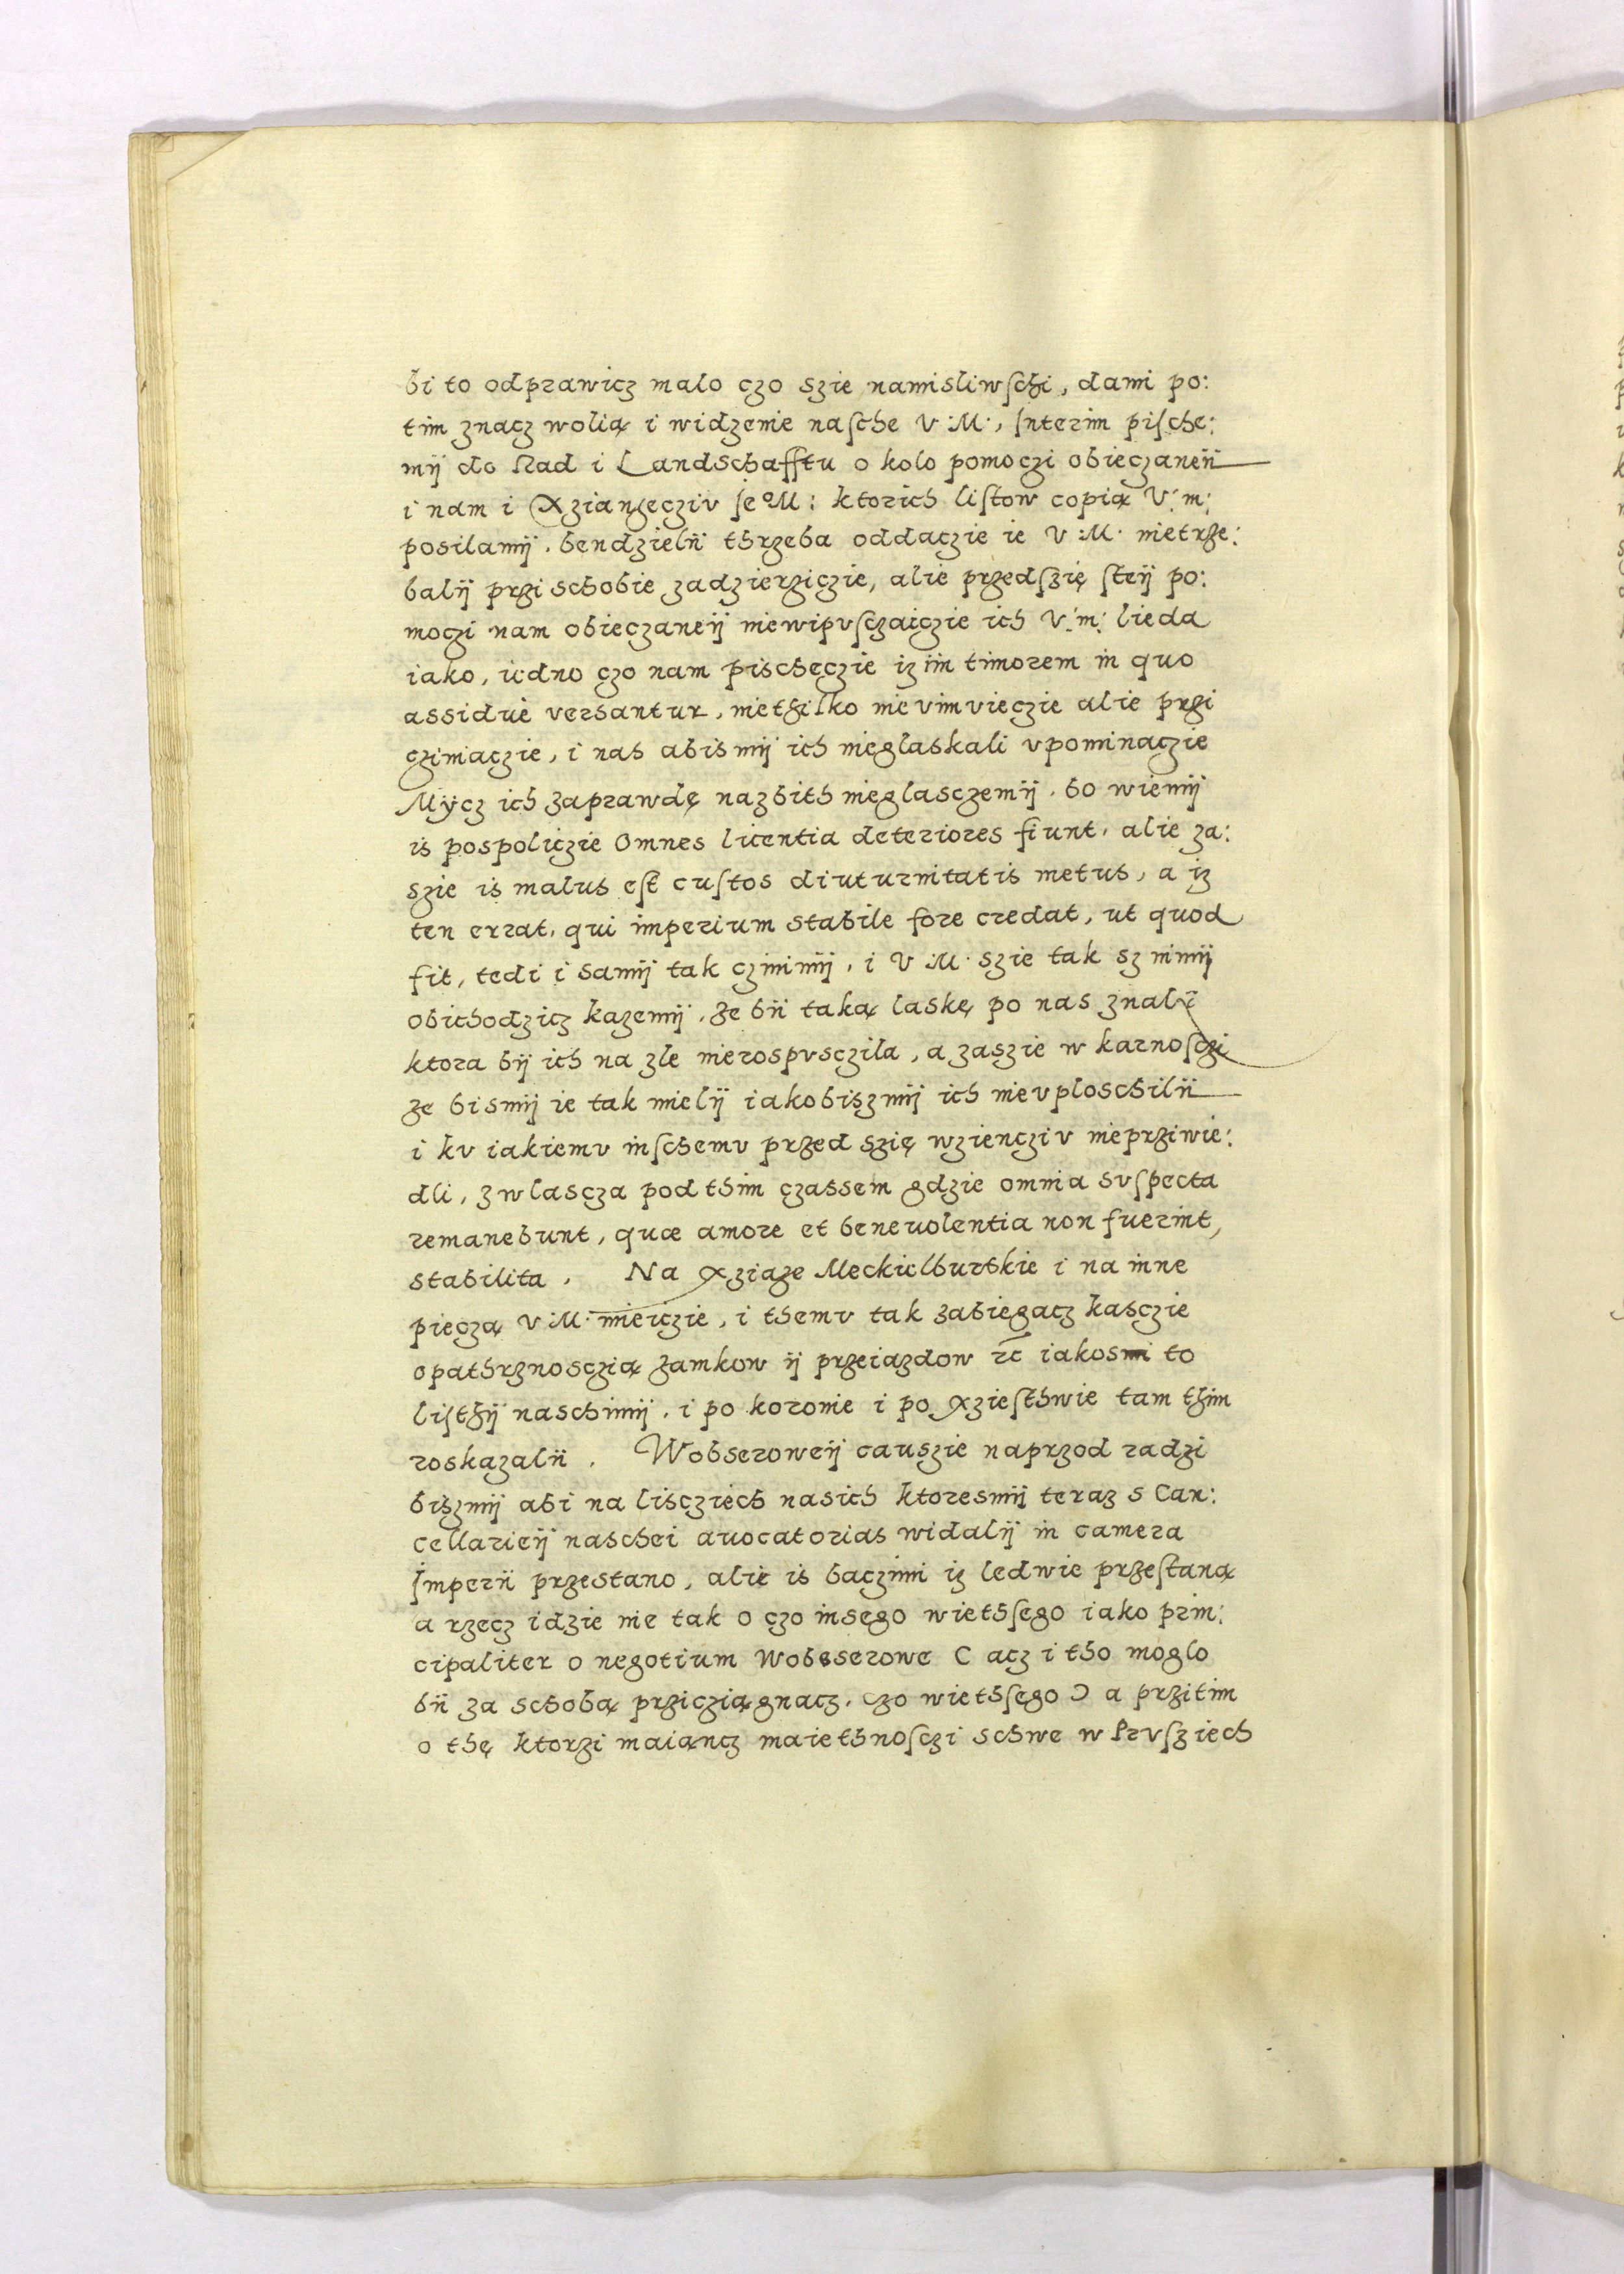 bi to odprawicz malo czo szie namisliwſchi, dami po:
tim znacz wolią i widzenie naſche V:M:, Interim piſche:
mij do Rad i Landschafftu o kolo pomoczi obieczaneii
i nam i Xzianzecziv Je°M: ktorich liſtow copią V:m:
posilamij. bendzielii thrzeba oddaczie ie V:M: nietrze:
balij przi schobie zadzierziczie, alie przedſzię ſteij po:
moczi nam obieczaneij niewipvſczaiczie ich V:m: lieda
iako, iedno czo nam pischeczie iż im timorem in quo
assidue versantur, niethilko nievimvieczie alie przi
czyniaczie, i nas abismij ich nieglaskali vpominaczie
Mÿcz ich zaprawdę nazbith nieglasczemij. bo wiemij
is pospoliczie Omnes licentia deteriores fiunt. alie za:
szie is malus eſt cuſtos diuturnitatis metus, a iz
ten errat, qui imperium stabile fore credat, ut quod
fit, tedi i samij tak czinimij, i V:M: szie tak sz nimij
obichodzicz kazemij. ze bii taką laskę po nas znali
ktora bij ich na zle nierospvsczila, a zaszie w karnoſczi
ze bismij ie tak mielij iakobiszmij ich nievploschilii
i kv iakiemv inſchemv przed szię wziencziv nieprziwie:
dli, zwlascza pod thim czassem gdzie omnia svſpecta
remanebunt, quæ amore et beneuolentia non fuerint,
stabilita. Na Xziaze Meckielburskie i na inne
pieczą V:M: mieiczie, i themv tak zabiegacz kasczie
opathrznosczią zamkow ij przeiazdow ꝛc̄ iakosmi to
liſthij naschimij. i po koronie i po Xzieſthwie tam thim
roskazalii. Wobseroweij causzie naprzod radzi
biszmij abi na lisczziech nasich ktoresmij teraz s Can:
cellarieij naschei auocatorias widalij in camera
Imperii przestano, alie is baczimi iz ledwie przeſtaną
a rzecz idzie nie tak o czo insego wiethſego iako prin:
cipaliter o negotium Wobsserowe C acz i tho moglo
bii za schobą prziczią̨gnacz. czo wiethſego Ɔ a przitim
o thę ktorzi maiąncz maiethnoſczi schwe w Prvſziech